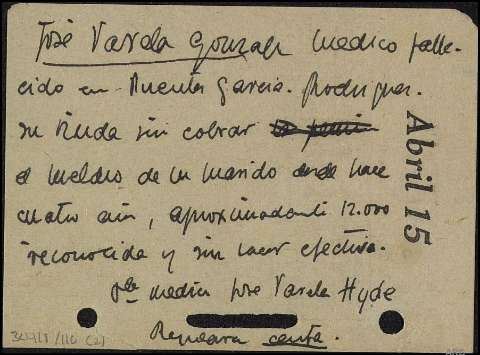 José Varela Gonzalez medico falle-
cido en Puentes Garcia. Rodriguez.
su viuda sin cobrar
el sueldo de su marido desde hace
cuatro años, aproximadamente 12.000
reconocida y sin hacer efectiva.
medico José Varela Hyde
carta.
Abril 15